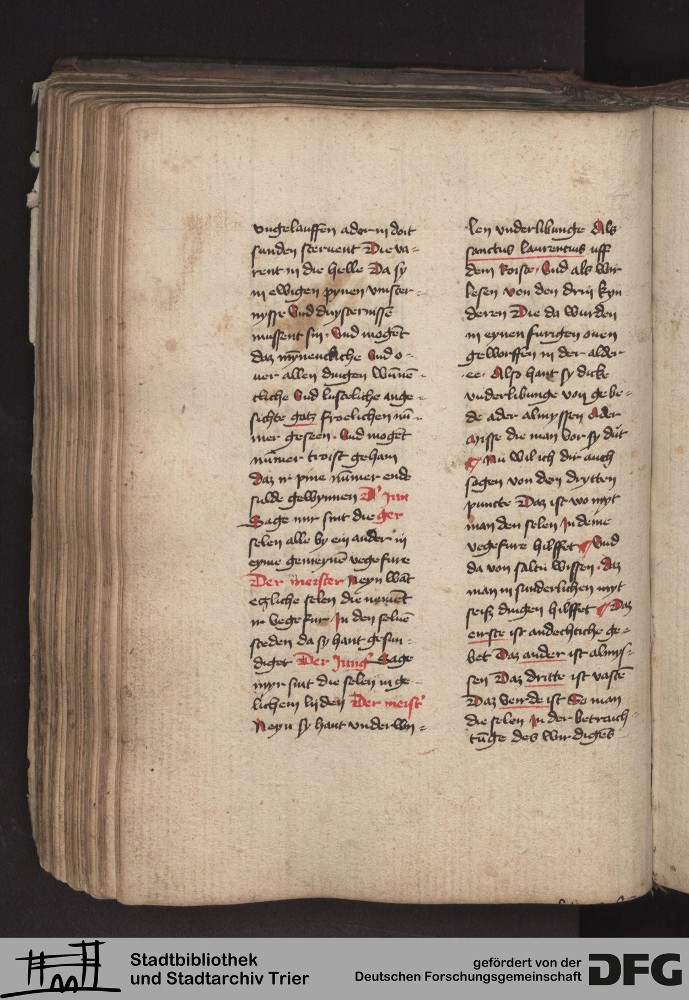 vngelauffen ader in doit
sunden steruent Die va-
rent in die helle Da sy
in ewigen pynen vinster-
nysse Vnd duysternisse
mussent sin. Vnd mogēt
daz mynenckliche Vnd o-
uer allen dingen wūnē-
cliche Vnd lusteliche ange-
sichte gotz froelichen nū-
mer geseen. Vnd mogēt
nūmer troist gehain
Daz ir pine nūmer ende
sulde gewynnen D' jun
Sage mir sint die ger
selen alle by ein ander in
eyme gemeynē vegefure
Der meister Neyn wāt
etzliche selen die nement
ir vegefur In den seluē
steden da sy hant gesun-
diget Der Jung' Sage
myr sint die selen in ge-
lichem lijden Der meist'
Neyn sy hant vnderwi-
len vnderlibunge Als
sanctus laurentius uff
dem roiste. Vnd als wir
lesen von den drin kyn
deren Die da wurden
in eynen furigen ouen
geworffen in der alder
ee. Also hant sy dicke
vnderlibunge von gebe-
de ader almyssen Ader
misse die man vor sy dūt
Nu wil ich dir auch
sagen von dem drytten
puncte Daz ist wo myt
man den selen In deme
vegefure hilffet Vnd
da von saltu wissen. daz
man in sunderlichen myt
seiß dingen hilffet Daz
eirste ist andechtiche ge-
bet Daz ander ist almyß-
sen Daz dritte ist vastē
Daz veirde ist So man
die selen In der betrach-
tūge des wirdigēs
Stadtbibliothek
und Stadtarchiv Trier
gefördert von der
Deutschen Forschungsgemeinschaft
DFG